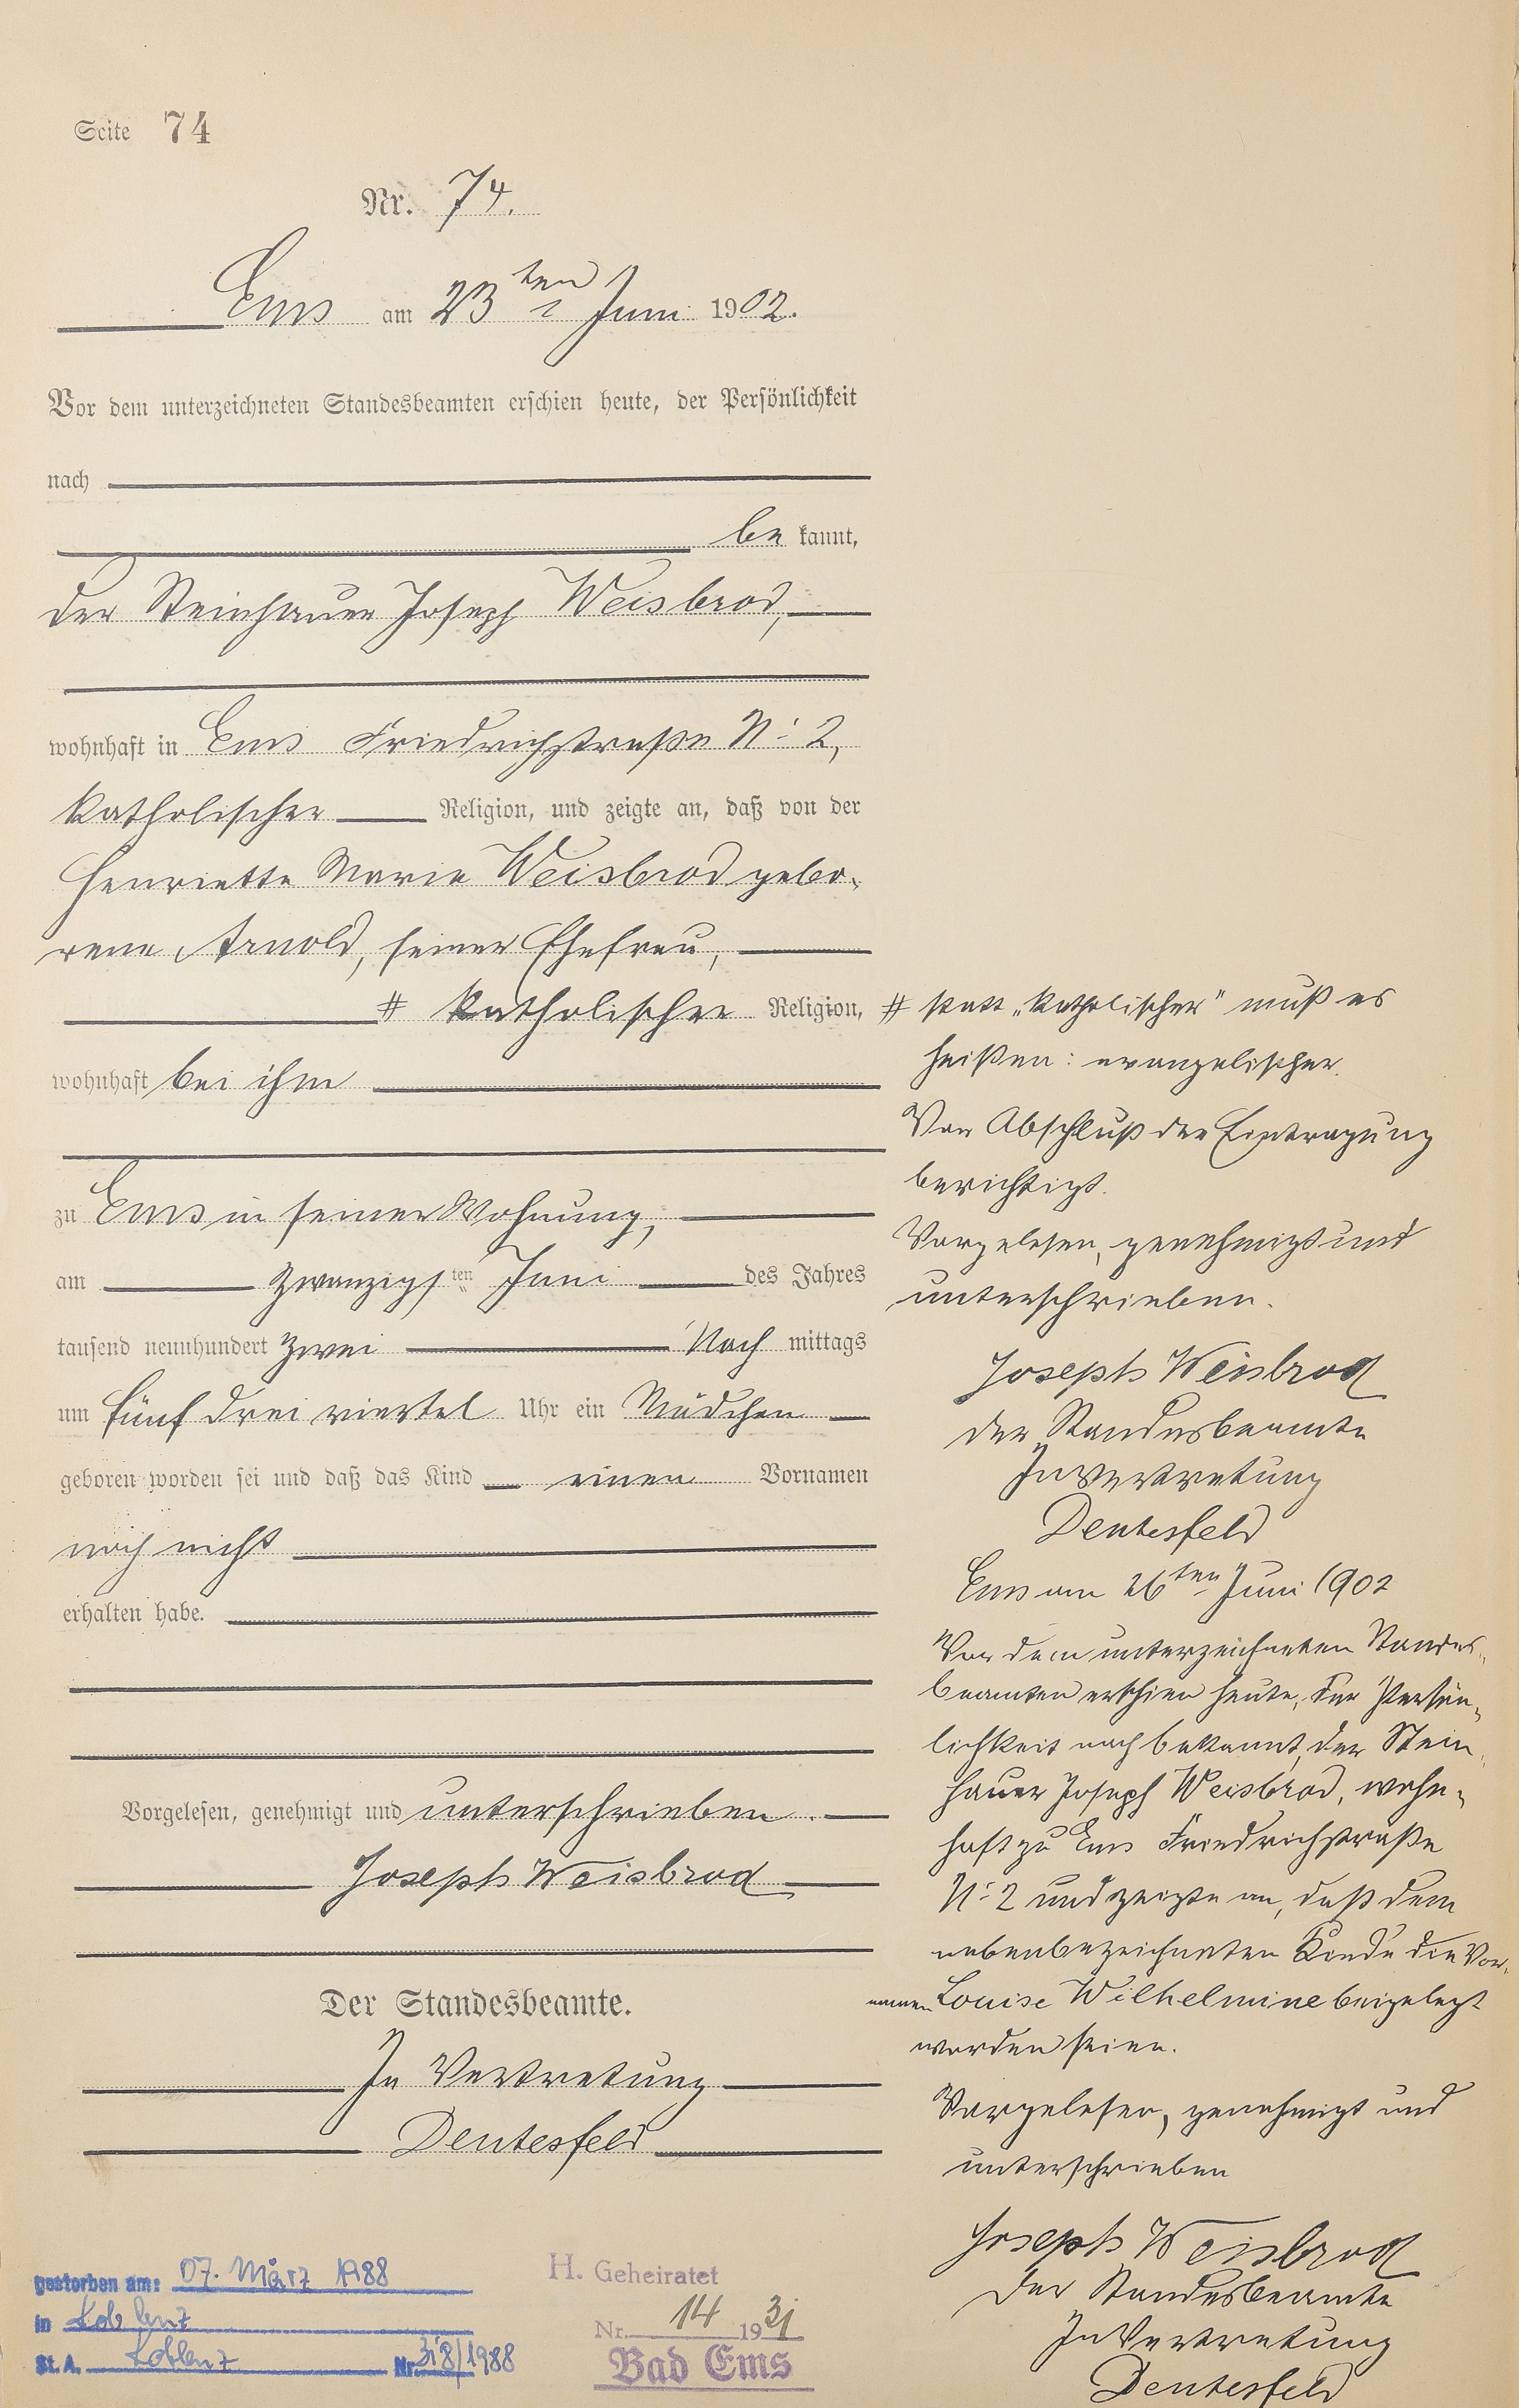 Seite 74
Nr. 74.
Ems am 23ten Juni 1902.
Vor dem unterzeichneten Standesbeamten erschien heute, der Persönlichkeit
nach
be kannt,
der Steinhauer Joseph Weisbrod,
wohnhaft in Ems Friedrichstraße No 2,
katholischer Religion, und zeigte an, daß von der
Henriette Marie Weisbrod gebo-
rene Arnold, seiner Ehefrau,
# katholischer Religion,
wohnhaft bei ihm
zu Ems in seiner Wohnung,
am zwanzigsten Juni des Jahres
tausend neunhundert zwei Nach mittags
um fünf drei viertel Uhr ein Mädchen
geboren worden sei und daß das Kind einen Vornamen
noch nicht
erhalten habe.
Vorgelesen, genehmigt und unterschrieben.
Joseph Weisbrod
Der Standesbeamte.
In Vertretung
Dentesfeld
# statt „katholischer" muß es
heißen: evangelischer.
Vor Abschluß der Eintragung
berichtigt.
Vorgelesen, genehmigt und
unterschrieben.
Joseph Weisbrod
Der Standesbeamte
In Vertretung
Dentesfeld
Ems am 26ten Juni 1902
Vor dem unterzeichneten Standes-
beamten erschien heute, der Persön-
lichkeit nach bekannt, der Stein-
hauer Joseph Weisbrod, wohn-
haft zu Ems Friedrichstraße
No 2 und zeigte an, daß dem
nebenbezeichneten Kinde die Vor-
namen Louise Wilhelmine beigelegt
worden seien.
Vorgelesen, genehmigt und
unterschrieben
Joseph Weisbrod
Der Standesbeamte
In Vertretung
Dentesfeld
gestorben am: 07. März 1988
in Koblenz
St. A. Koblenz Nr. 318/1988
H. Geheiratet
Nr. 14 1931
Bad Ems